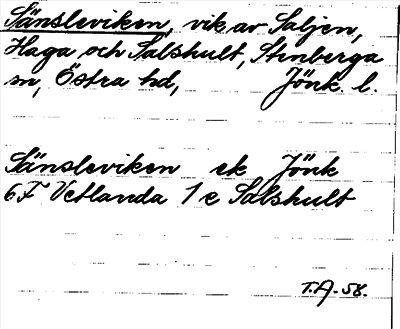 Sänsleviken, vik av Saljen,
Haga och Salshult, Stenberga
sn, Östra hd, Jönk. l.
Sänsleviken ek Jönk
6F Vetlanda 1 e Salshult
T.A. 58.